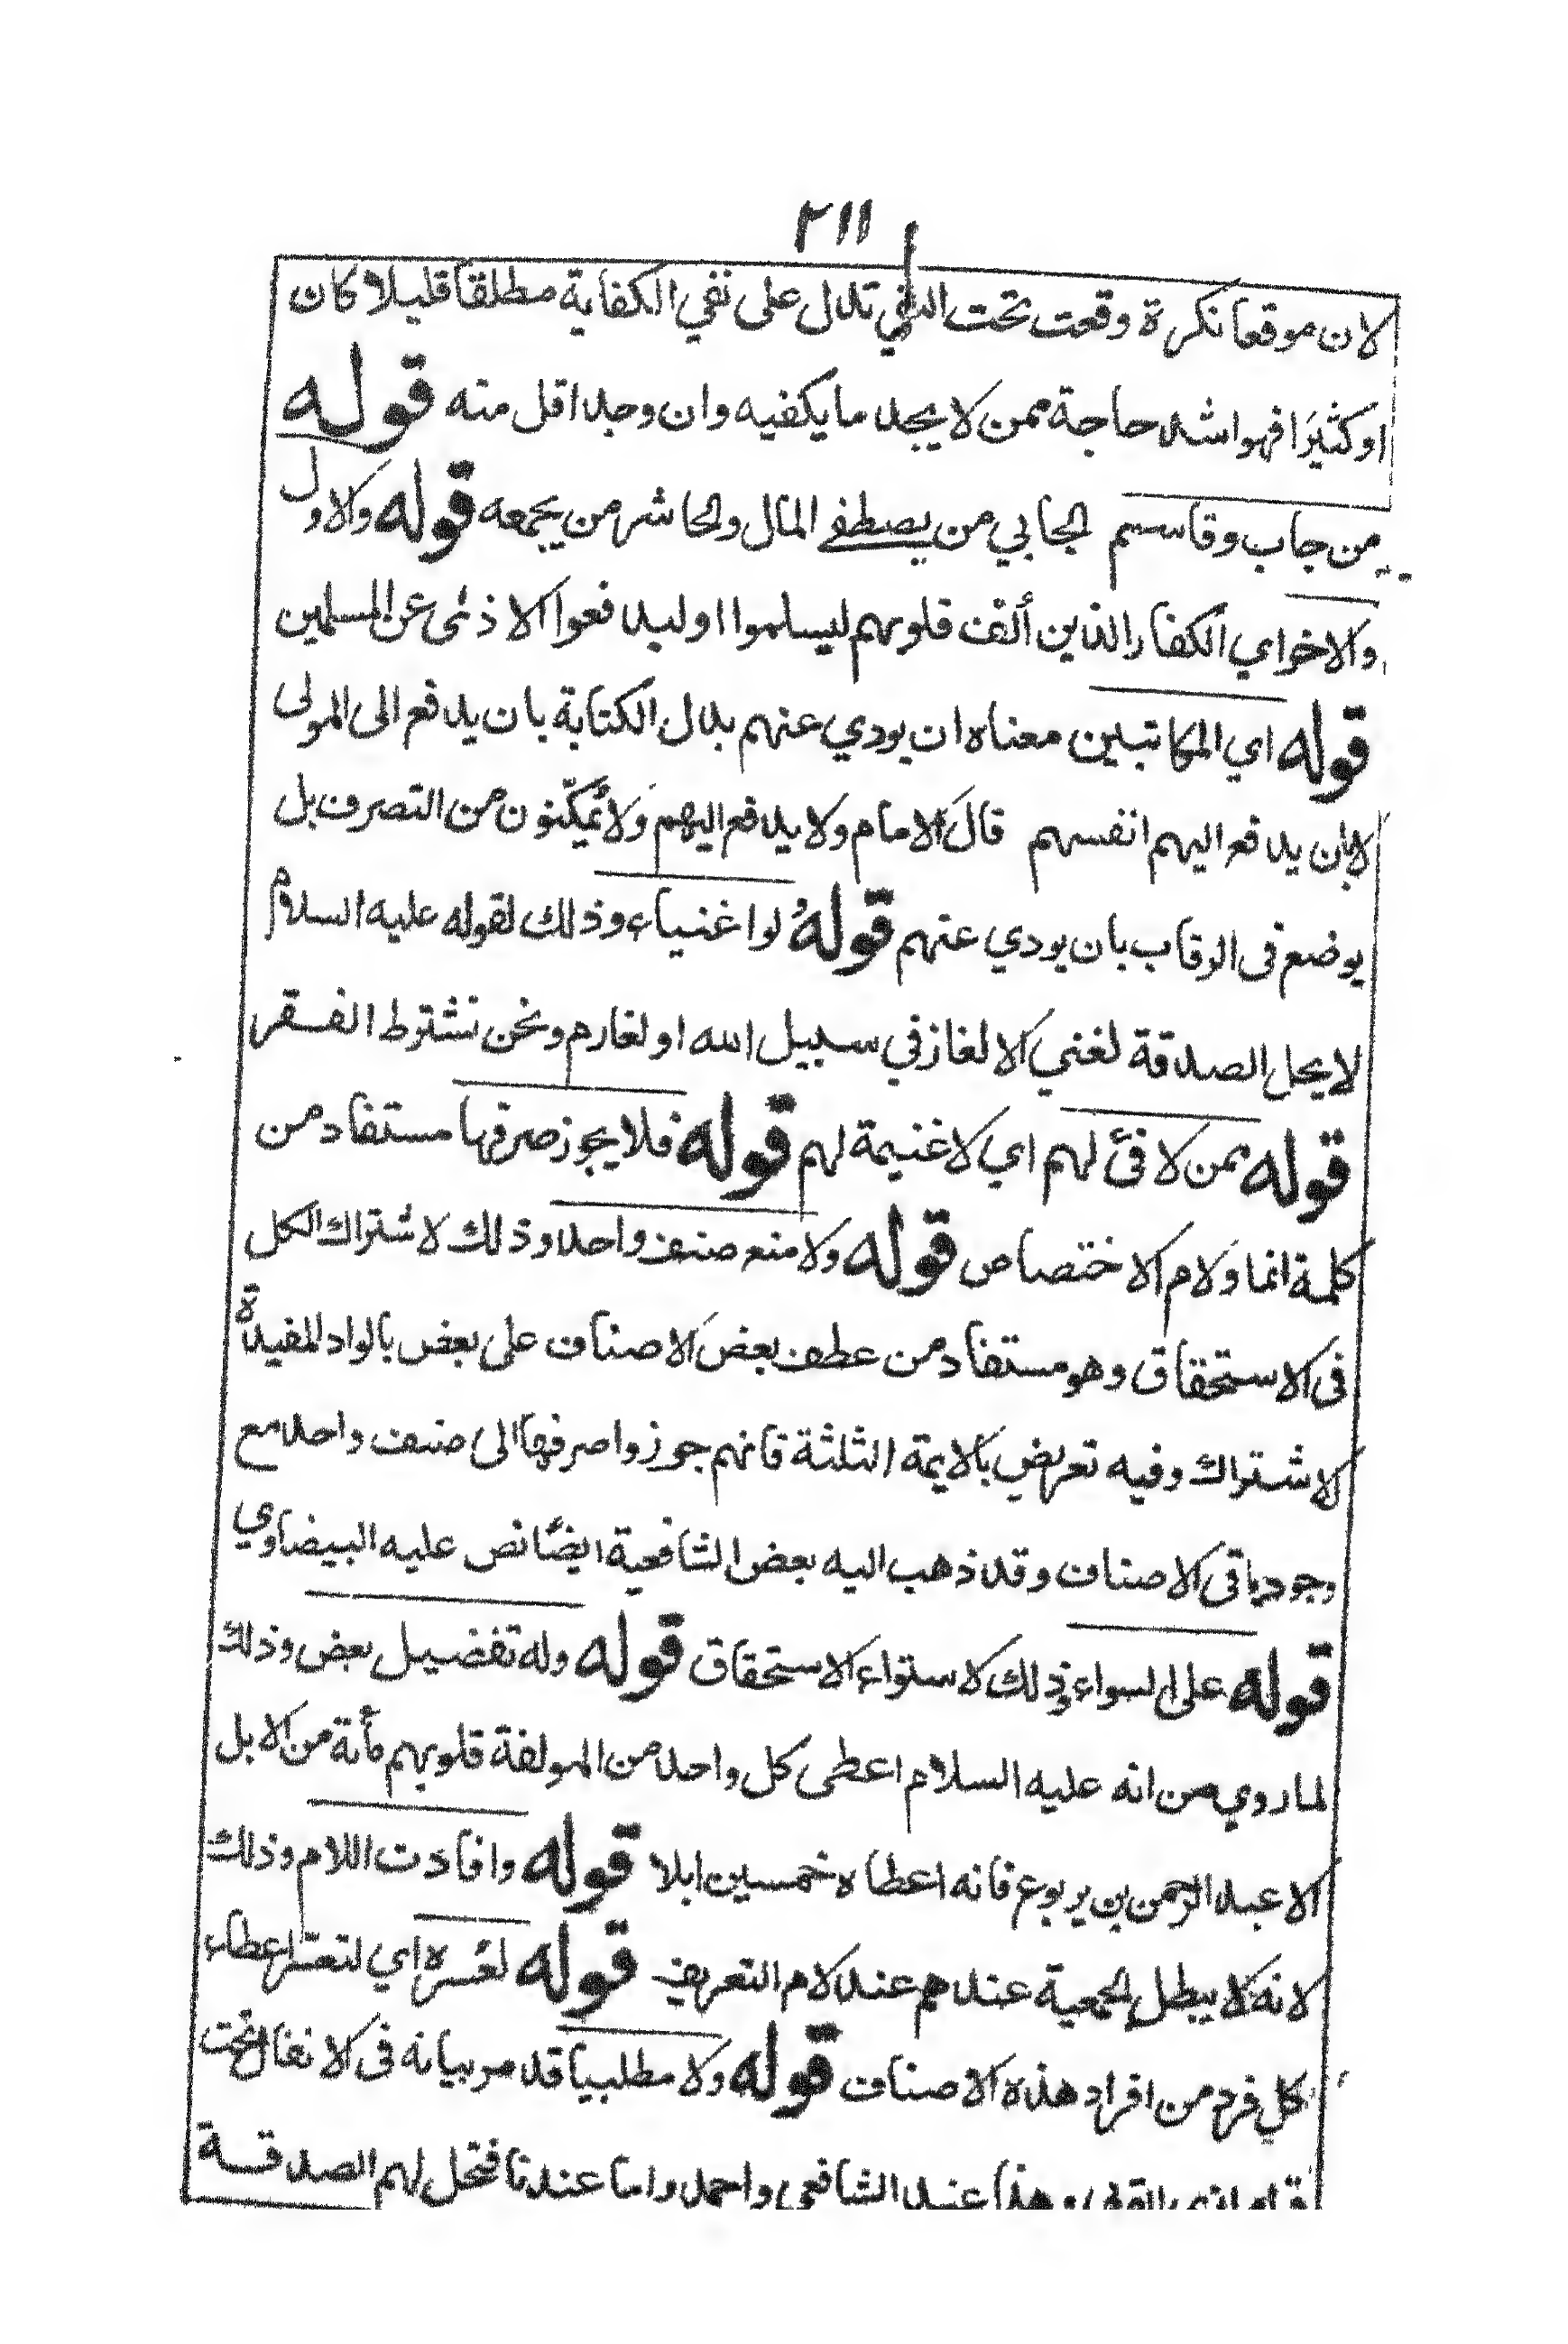 ٢١١
لان موقعا نكرة وقعت تحت النفي تدل على نفي الكفاية مطلقا قليلا كان
او كثيرا فهو اشد حاجة ممن لا يجد ما يكفيه وان وجد اقل منه قوله
من جاب وقاسم الجابي من يصطفى المال والحاشر من يجمعه قوله والاول
والاخر اي الكفار الذين ألف قلوبهم ليسلموا او ليدفعوا الاذى عن المسلمين
قوله اي المكاتبين معناه ان يودي عنهم بدل الكتابة بان يدفع الى المولى
لابان يدفع اليهم انفسهم قال الامام ولا يدفع اليهم ولا يمكّنون من التصرف بل
يوضع فى الرقاب بان يودي عنهم قوله لو اغنياء وذلك لقوله عليه السلام
لا يحل الصدقة لغني الا لغاز في سبيل الله او لغارم ونحن نشترط الفقر
قوله ممن لا فئ لهم اي لا غنيمة لهم قوله فلا يجوز صرفها مستفاد من
كلمة انما ولام الاختصاص قوله ولا منع صنف واحد وذلك لاشتراك الكل
فى الاستحقاق وهو مستفاد من عطف بعض الاصناف على بعض بالواو المفيدة
لاشتراك وفيه تعريض بالايمة الثلثة فانهم جوزوا صرفها الى صنف واحد مع
وجود باقى الاصناف وقد ذهب اليه بعض الشافعية ايضا نص عليه البيضاوي
قوله على السواء وذلك لاستواء الاستحقاق قوله وله تفضيل بعض وذلك
لما روي من انه عليه السلام اعطى كل واحد من المولفة قلوبهم مأنة من الابل
الا عبد الرحمن بن يربوع فانه اعطاه خمسين ابلا قوله وافادت اللام وذلك
لانه لا يبطل الجمعية عندهم عند لام التعريف قوله لعسره اي لتعسر اعطاء
كل فرد من افراد هذه الاصناف قوله ولا مطلبيا قد مر بيانه فى الانفال تحت
وهذا عند الشافعي واحمد واما عندنا فتحل لهم الصدقة